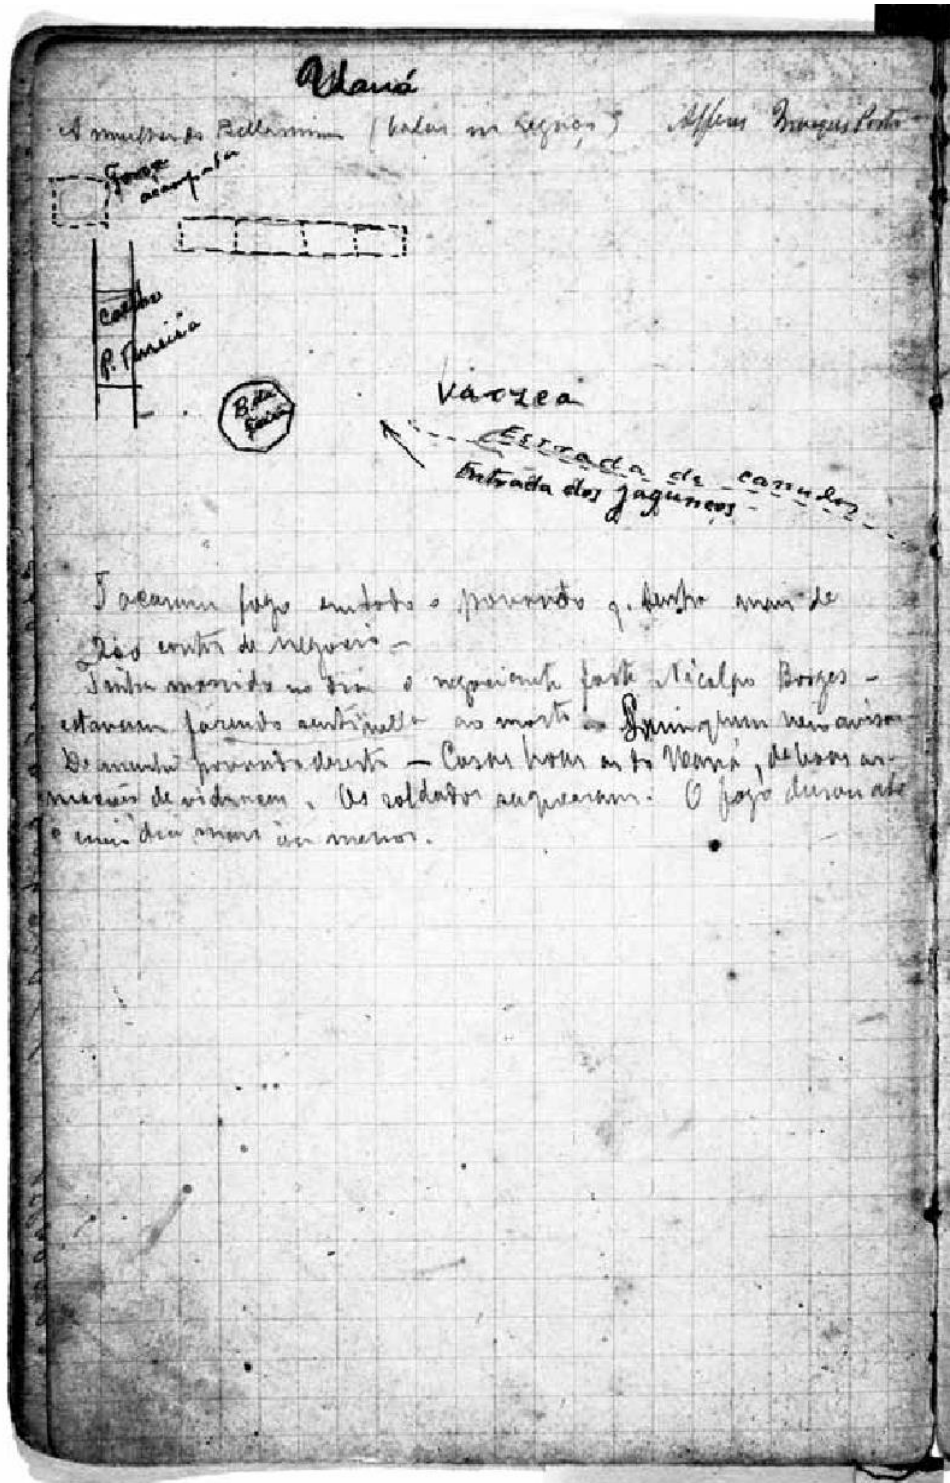 Uauá
A mulher do Bellarmino (balas na região) Alferes Marques Porto
Força
acampada
Coelho
P. Ferreira
B. da
Varzea
Estrada de canudos
Entrada dos jagunços
Tocaram fogo em todo o povoado q. tenha mais de
contos de negocio –
Tinha morrido no dia o negociante forte Nicolao Borges –
estavam fazendo sentinella ao morto
De manhã povoado deserto – Casas boas as do Uauá, de boas ar-
mações de vidraças. Os soldados saquearam. O fogo durou até
o meio dia mais ou menos.